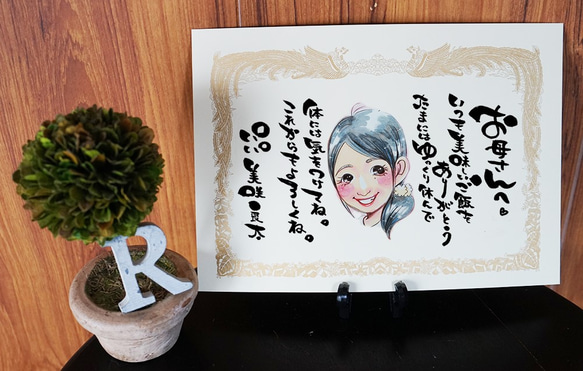 お母さんへ。
いつも美味しいご飯を
ありがとう
たまにはゆっくり休んで
体には気をつけてね。
これからもよろしくね。
美咲 良太
R